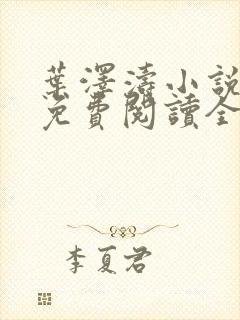 葉澤濤小說
免費閱讀全
李夏君